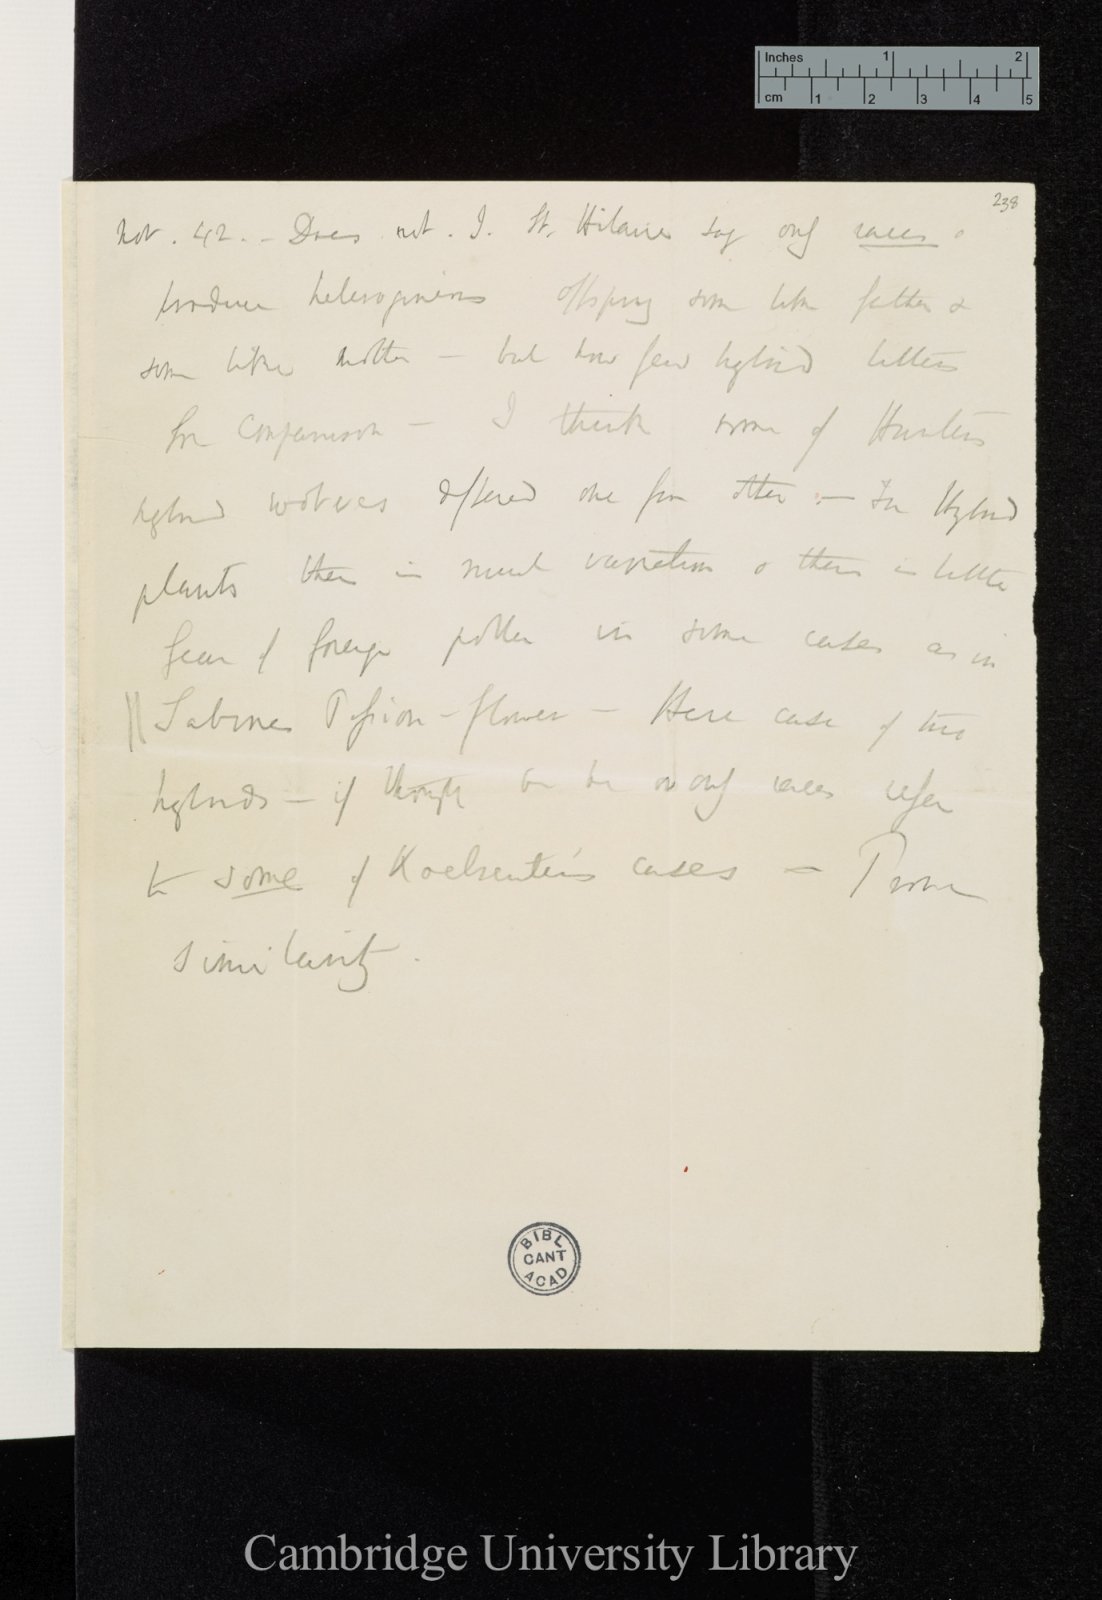 Inches 1 2
cm 1 2 3 4 5
238
Nov. 42. – Does not. I. St. Hilaire say only races
produce heterogeneous offspring some like father &
some like mother – but how few hybrid litters
for comparison – I think some of Hunters
hybrid wolves differed one from other – In Hybrid
plants there is much variation & there is little
fear of foreign pollen in some cases as in
|| Sabines Passion-flower – Here case of two
hybrids – if thought to be only races refer
to some of Koelreuter's cases –
similarity.
BIBL
CANT
ACAD
Cambridge University Library